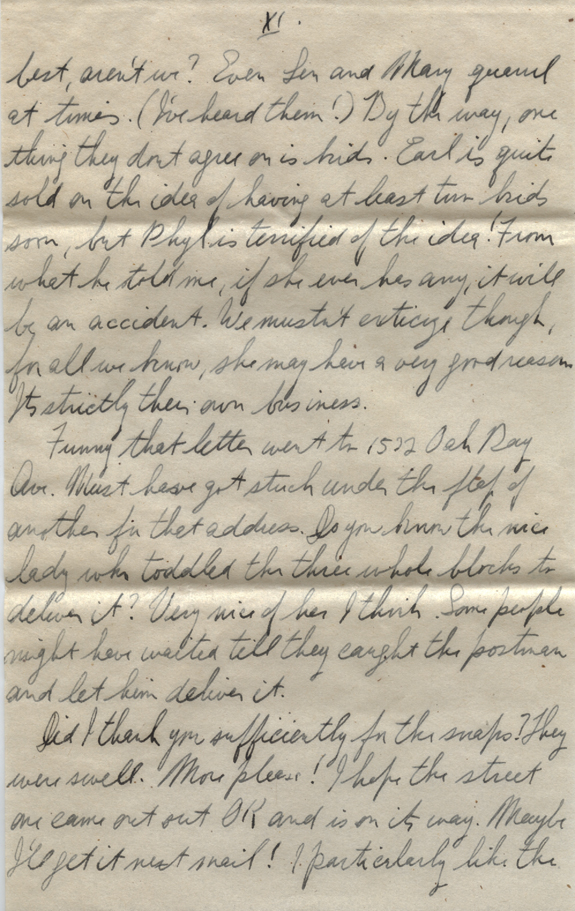 XI.
best, aren't we? Even Len and Mary quarrel
at times. (I've heard them!) By the way, one
thing they dont agree on is kids. Earl is quite
sold on the idea of having at least two kids
soon, but Phyl is terrified of the idea! From
what he told me, if she ever has any, it will
be an accident. We mustn't criticize though,
for all we know, she may have a very good reason
Its strictly their own business.
Funny that letter went to 1522 Oak Bay
Ave. Must have got stuck under the flap of
another for that address. Do you know the nice
lady who toddled the three whole blocks to
deliver it? Very nice of her I think. Some people
might have waited till they caught the postman
and let him deliver it.
Did I thank you sufficiently for the snaps? They
were swell. More please! I hope the street
one came out out OK and is on its way. Maybe
I'll get it next mail! I particularly like the